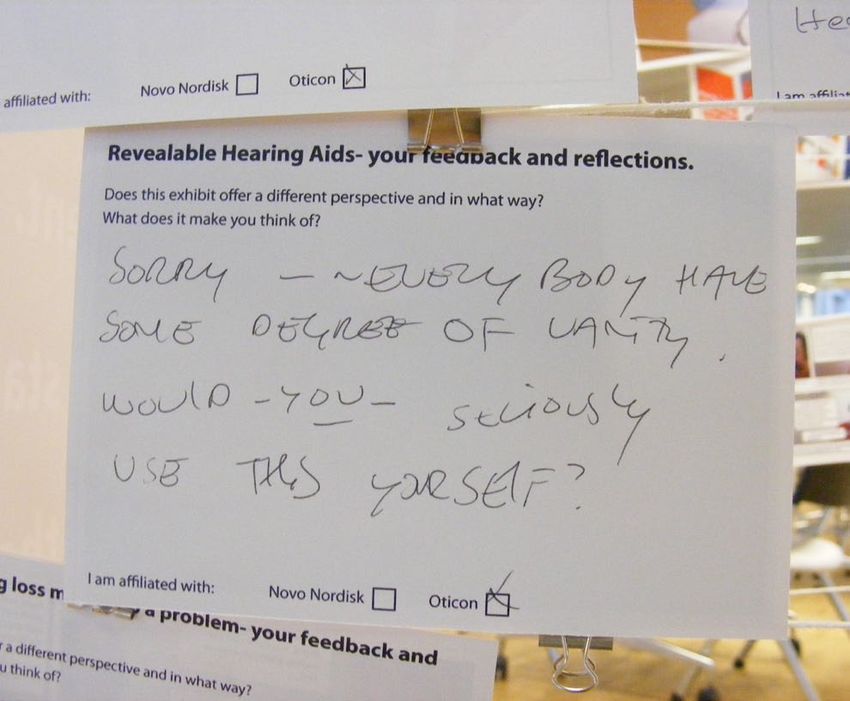 affiliated with: Novo Nordisk Oticon
Hea
I am affilia
Revealable Hearing Aids- your feedback and reflections.
Does this exhibit offer a different perspective and in what way?
What does it make you think of?
SORRY — ~ EVERY BODY HAVE
SOME DEGREE OF VANITY.
WOULD -YOU- SERIOUSLY
USE THIS YOURSELF?
I am affiliated with: Novo Nordisk Oticon
g loss m a problem- your feedback and
r a different perspective and in what way?
u think of?